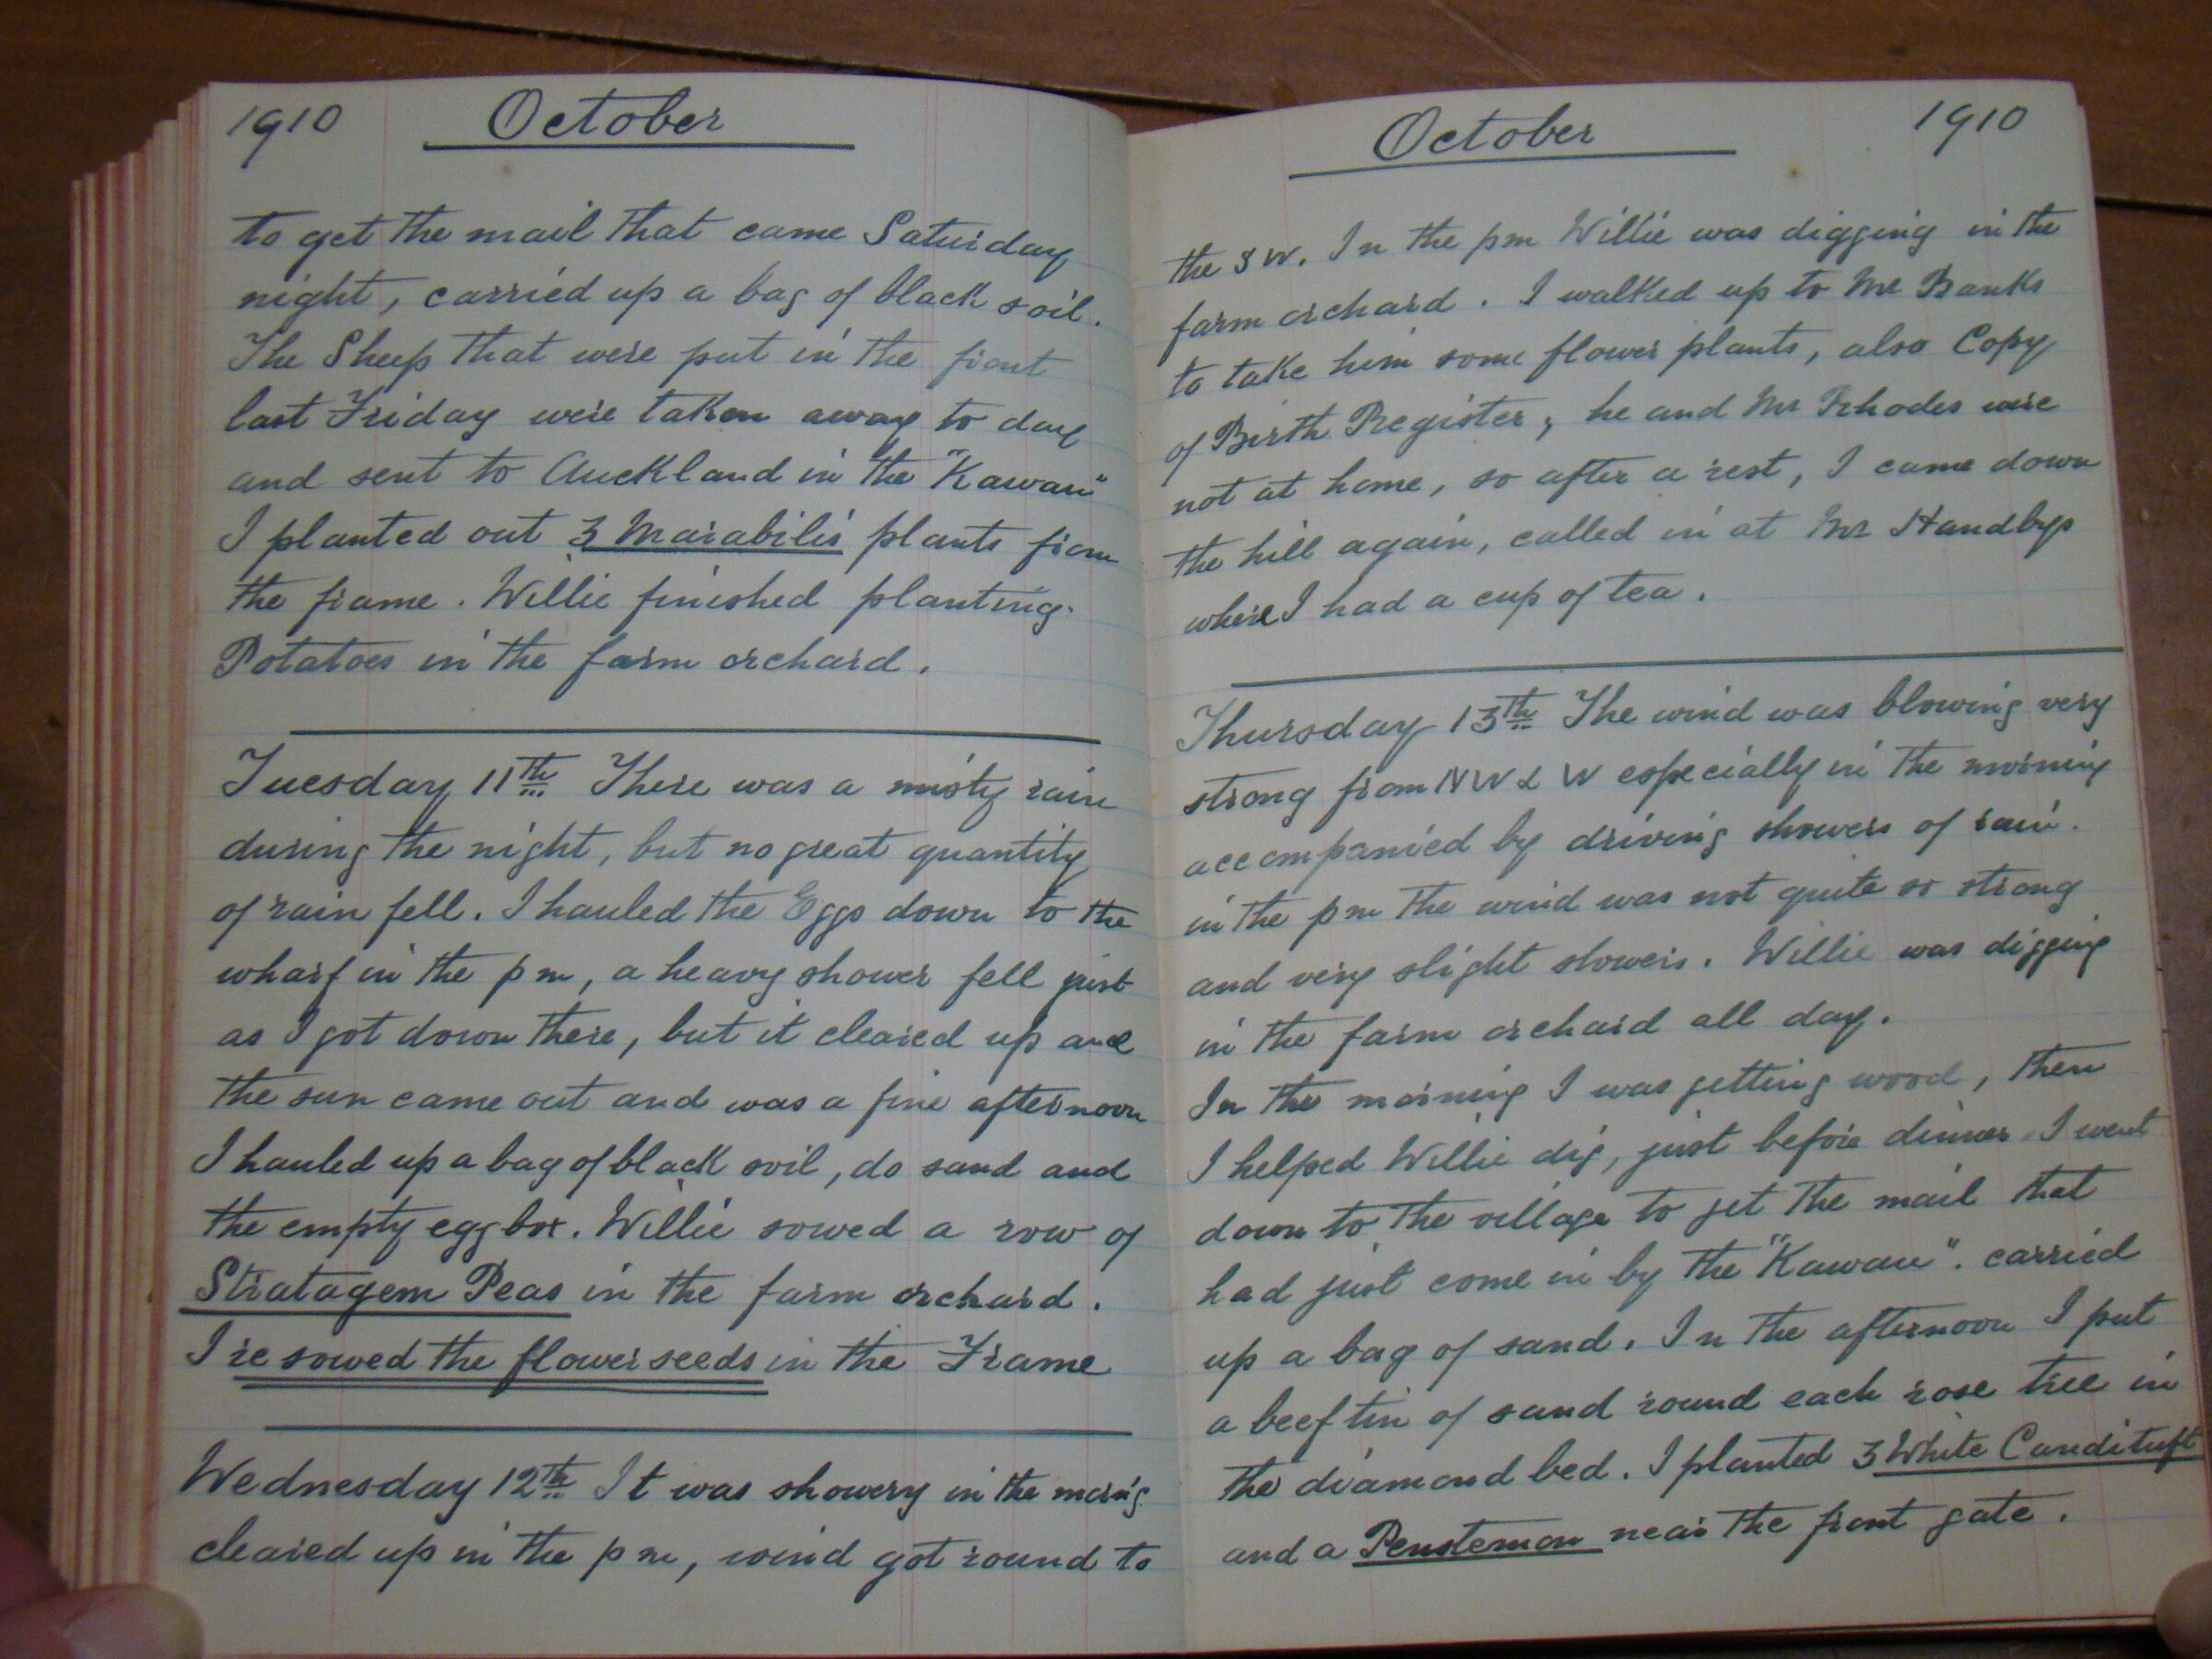 1910 October
to get the mail that came Saturday
night, carried up a bag of black soil.
The Sheep that were put in the front
last Friday were taken away to day
and sent to Auckland in the "Kawau"
I planted out 3 Marabilis plants from
the frame. Willie finished planting
Potatoes in the farm orchard.
Tuesday 11th There was a misty rain
during the night, but no great quantity
of rain fell. I hauled the Eggs down to the
wharf in the pm, a heavy shower fell just
as I got down there, but it cleared up and
the sun came out and was a fine afternoon
I hauled up a bag of black soil, do sand and
the empty egg box. Willie sowed a row of
Stratagem Peas in the farm orchard.
I re sowed the flower seeds in the Frame
Wednesday 12th It was showery in the morng
cleared up in the pm, wind got round to
October 1910
the SW. In the pm Willie was digging in the
farm orchard. I walked up to Mr Banks
to take him some flower plants, also Copy
of Birth Register, he and Mr Rhodes were
not at home, so after a rest, I came down
the hill again, called in at Mr Handbys
where I had a cup of tea.
Thursday 13th The wind was blowing very
strong from NW & W especially in the morning
accompanied by driving showers of rain.
in the pm the wind was not quite so strong
and very slight showers. Willie was digging
in the farm orchard all day.
In the morning I was getting wood, then
I helped Willie dig, just before dinner I went
down to the village to get the mail that
had just come in by the "Kawau". carried
up a bag of sand. In the afternoon I put
a beef tin of sand round each rose tree in
the diamond bed. I planted 3 White Candituft
and a Penstemon near the front gate.